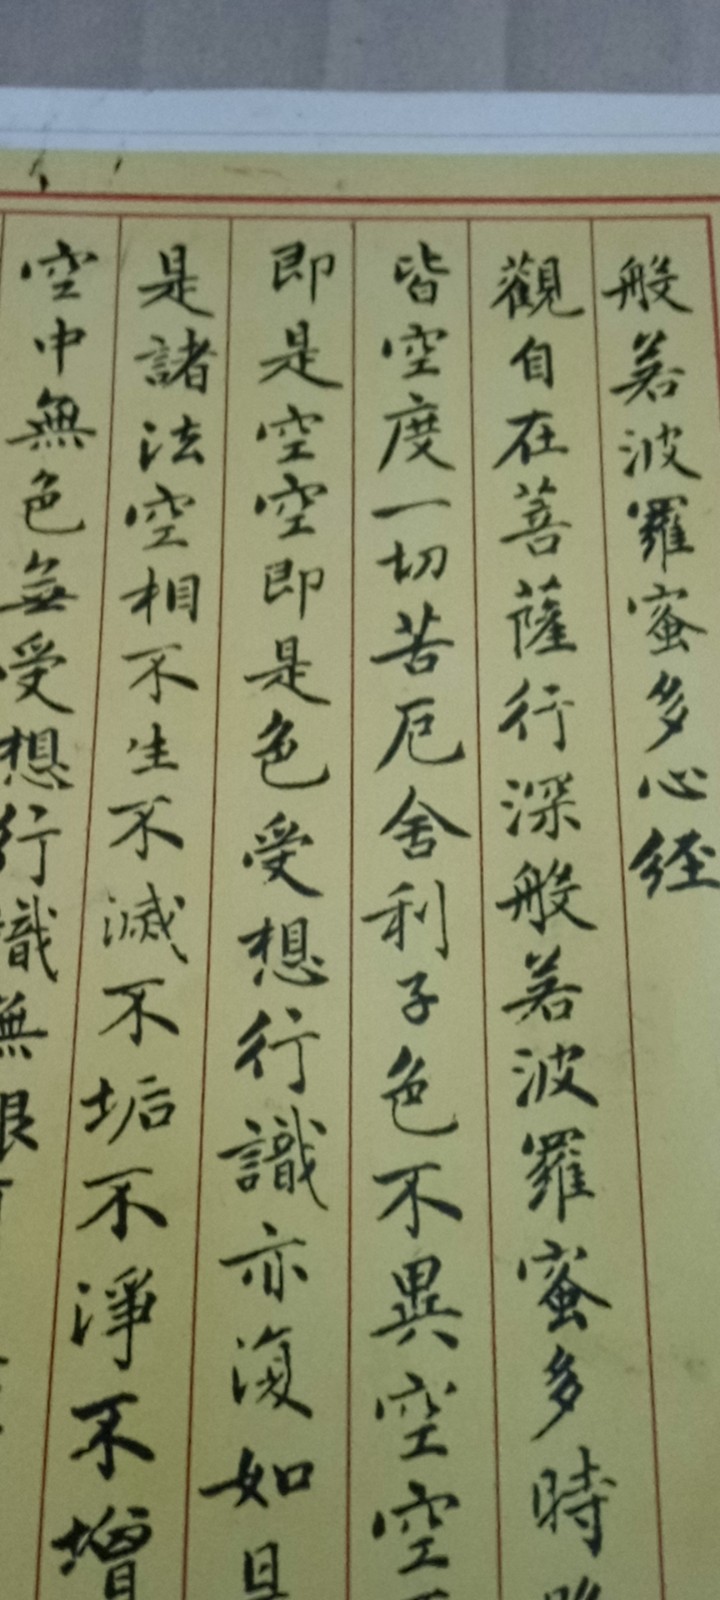 般若波羅蜜多心経
觀自在菩薩行深般若波羅蜜多時
皆空度一切苦厄舍利子色不異空空
即是空空即是色受想行識亦復如是
是諸法空相不生不滅不垢不淨不增
空中無色無受想行識無眼